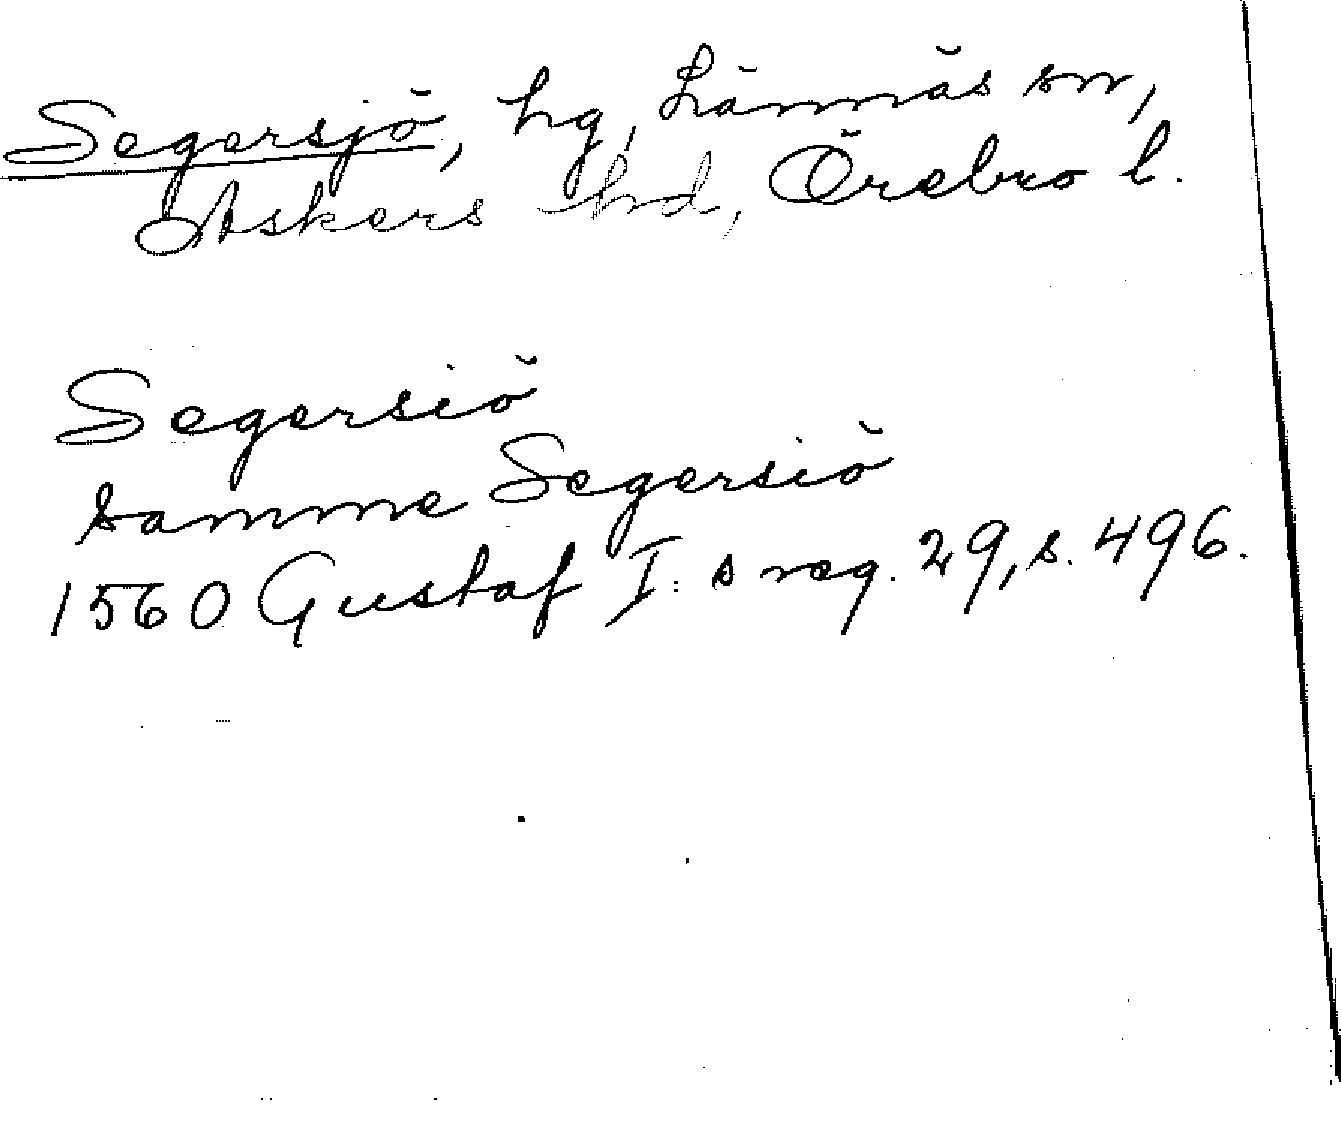 Segersjö, hg, Lännäs sn,
Askers hd, Örebro l.
Segersiö
samme Segersiö
1560 Gustaf I:s reg. 29, s. 496.